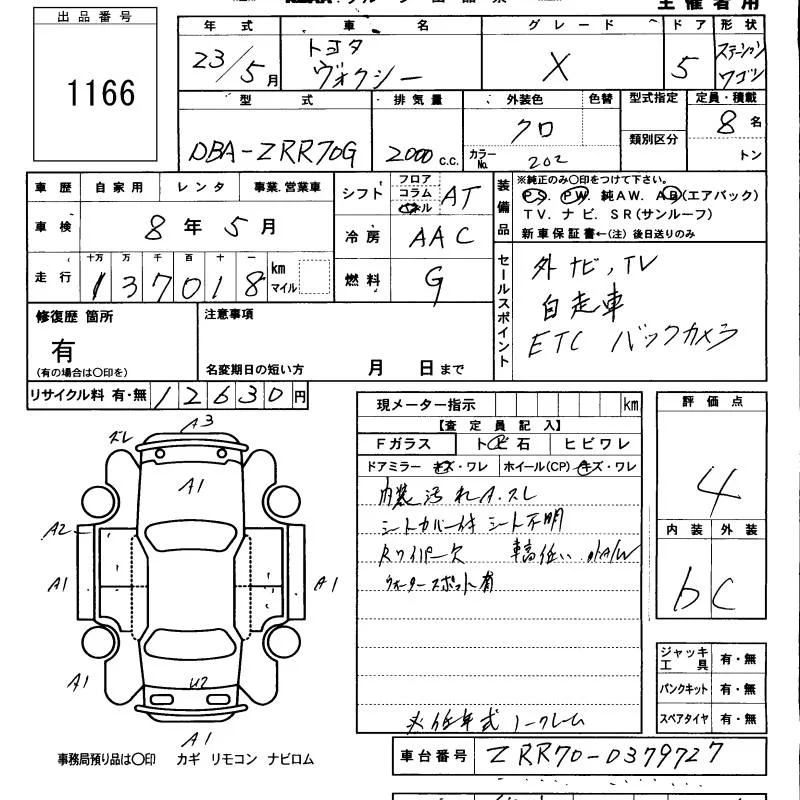 主催者用
出品番号
1166
年式 車名 グレード ドア 形状
23/5月 トヨタ ヴォクシー X 5 ステーションワゴン
型式 排気量 外装色 色替 型式指定 定員・積載
類別区分
DBA-ZRR70G 2000c.c. クロ カラーNo. 202 8名
トン
車歴 自家用 レンタ 事業.営業車
車検 8年5月
走行 十万 万 千 百 十 一
137018 km マイル
シフト フロア コラム パネル AT
冷房 AAC
燃料 G
装備品
※純正のみ〇印をつけて下さい。
PS. PW. 純AW. AB(エアバック)
TV. ナビ. SR(サンルーフ)
新車保証書←(注)後日送りのみ
セールスポイント
外ナビ,TV
自走車
ETC バックカメラ
修復歴 箇所
有
(有の場合は〇印を)
注意事項
名変期日の短い方 月 日まで
リサイクル料 有・無 12630円
現メーター指示 km
【査定員記入】
Fガラス トビ石 ヒビワレ
ドアミラー キズ・ワレ ホイール(CP) キズ・ワレ
内装汚れA.スレ
シートカバー付 シート不明
Rワイパー欠 車高低い 社外A/W
ウォータースポット有
低年式ノークレーム
評価点
4
内装 外装
b C
ジャッキ工具 有・無
パンクキット 有・無
スペアタイヤ 有・無
ズレ
A3
A1
A2
A1
A1
A1
U2
A1
事務局預り品は〇印 カギ リモコン ナビロム
車台番号 ZRR70-0379727